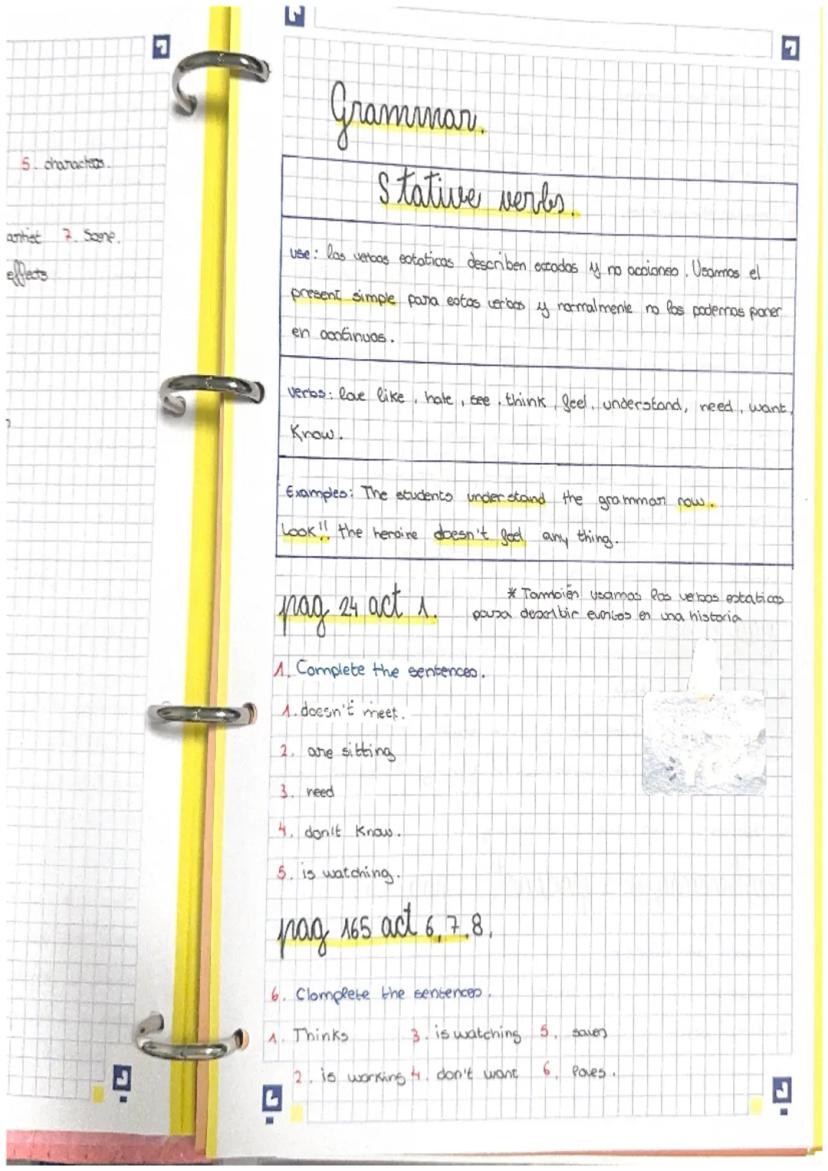 5. characters.
artist 7. Scene.
effects
Grammar.
Stative verbs.
use: los verbos estaticos describen estados y no acciones. Usamos el
present simple para estos verbos y normalmente no los podemos poner
en continuos.
verbs: love like, hate, see, think, feel, understand, need, want,
Know.
Examples: The students understand the grammar now.
Look!! the heroine doesn't feel any thing.
pag 24 act 1.
* También usamos los verbos estaticos
para describir eventos en una historia
1. Complete the sentences.
1. doesn't meet.
2. are sitting
3. need
4. don't Know.
5. is watching.
pag 165 act 6, 7, 8,
6. Clomplete the sentences.
1. Thinks 3. is watching 5. saves
2. is working 4. don't want 6. loves.